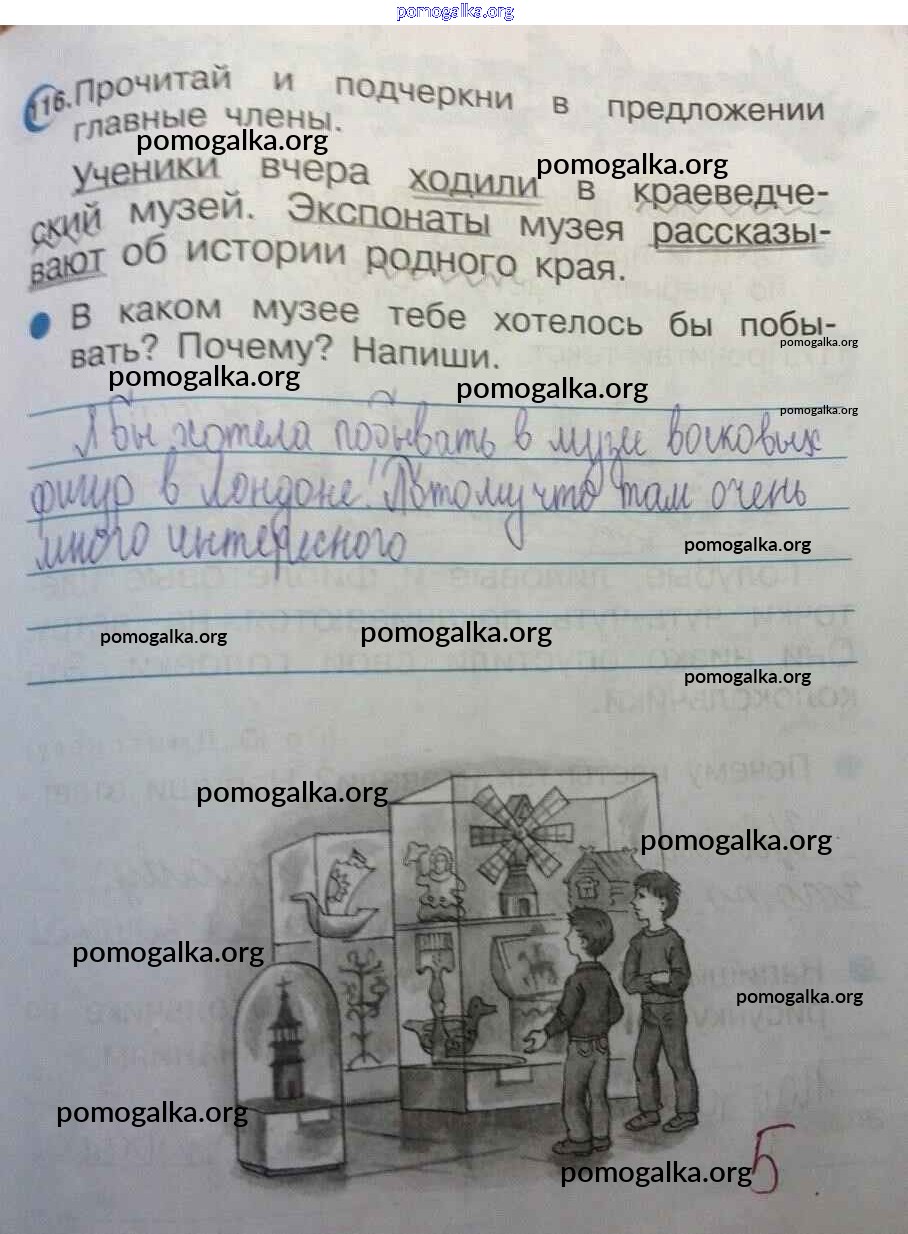 pomogalka.org
116. Прочитай и подчеркни в предложении
главные члены.
pomogalka.org
pomogalka.org
Ученики вчера ходили в краеведче-
ский музей. Экспонаты музея рассказы-
вают об истории родного края.
В каком музее тебе хотелось бы побы-
pomogalka.org
вать? Почему? Напиши.
pomogalka.org
pomogalka.org
pomogalka.org
Я бы хотела побывать в музеи восковых
фигур в Лондоне! Потому что там очень
много интересного
pomogalka.org
pomogalka.org
pomogalka.org
pomogalka.org
pomogalka.org
pomogalka.org
pomogalka.org
pomogalka.org
pomogalka.org
pomogalka.org
5